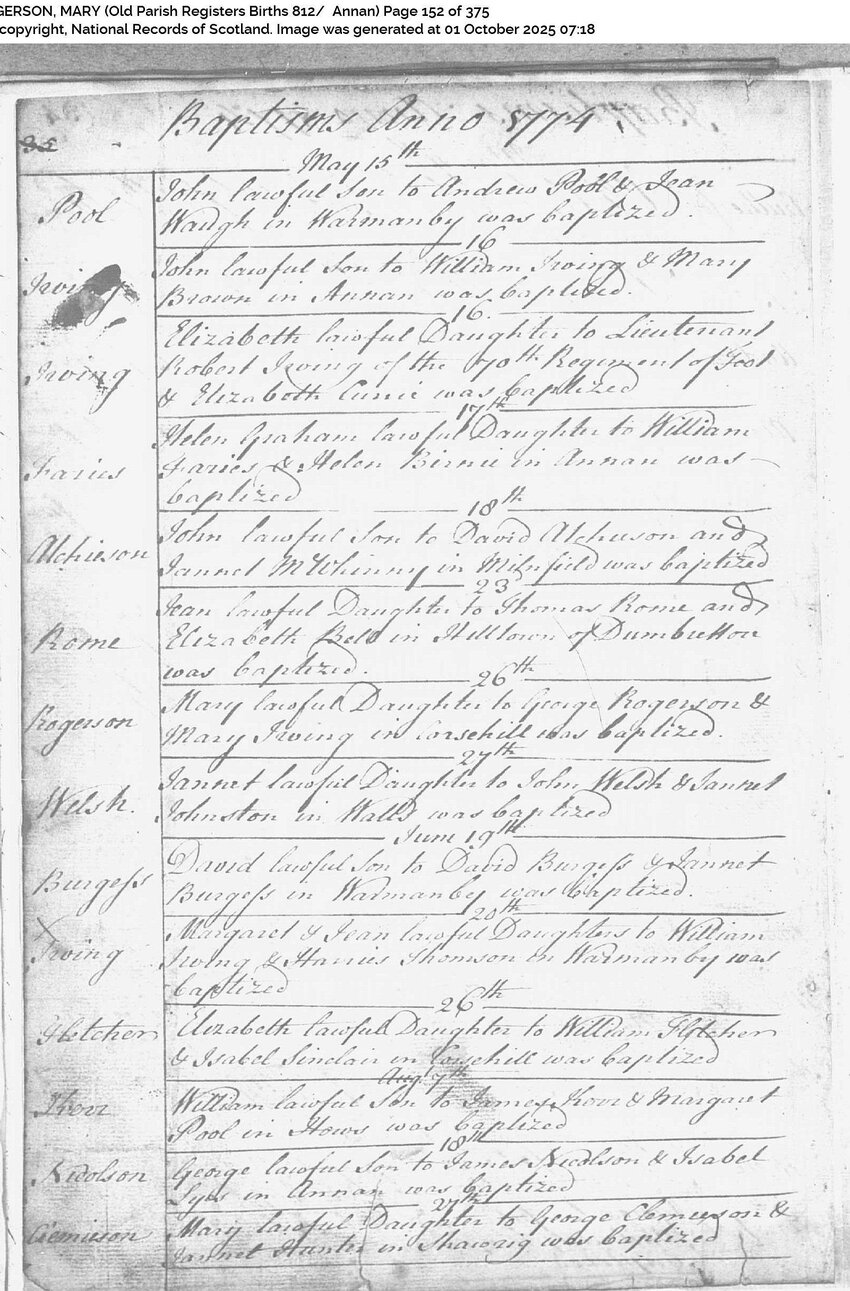 GERSON, MARY (Old Parish Registers Births 812/ Annan) Page 152 of 375
copyright, National Records of Scotland. Image was generated at 01 October 2025 07:18
Baptisms Anno 1774
May 15th
Pool
John lawful Son to Andrew Pool & Jean
Waugh in Warmanby was baptized.
16
Irving
John lawful Son to William Irving & Mary
Brown in Annan was baptized.
16.
Elizabeth lawful Daughter to Lieutenant
Irving
Robert Irving of the 70th Regiment of Foot
& Elizabeth Currie was baptized
17th
Helen Graham lawful Daughter to William
Faries
Faries & Helen Birnie in Annan was
baptized
18th
John lawful Son to David Atchieson and
Atchieson
Jannet McWhinny in Milnfield was baptized
23d
Jean lawful Daughter to Thomas Rome and
Rome
Elizabeth Bell in Hilltown of Dumbretton
was baptized.
26th
Rogerson
Mary lawful Daughter to George Rogerson &
Mary Irving in Corsehill was baptized.
27th
Welsh.
Jannet lawful Daughter to John Welsh & Jannet
Johnston in Walls was baptized
June 19th
Burgess
David lawful Son to David Burgess & Jannet
Burgess in Warmanby was baptized.
20th
Margaret & Jean lawful Daughters to William
Irving
Irving & Harries Thomson in Warmanby was
baptized
26th
Fletcher
Elizabeth lawful Daughter to William Fletcher
& Isabel Sinclair in Corsehill was baptized
Augt. 7th
Kerr
William lawful Son to James Kerr & Margaret
Pool in Hows was baptized
18th
Nicolson
George lawful Son to James Nicolson & Isabel
in Annan was baptized
27th
Clemieson
Mary lawful Daughter to George Clemieson &
Jannet Hunter in Shawrig was baptized